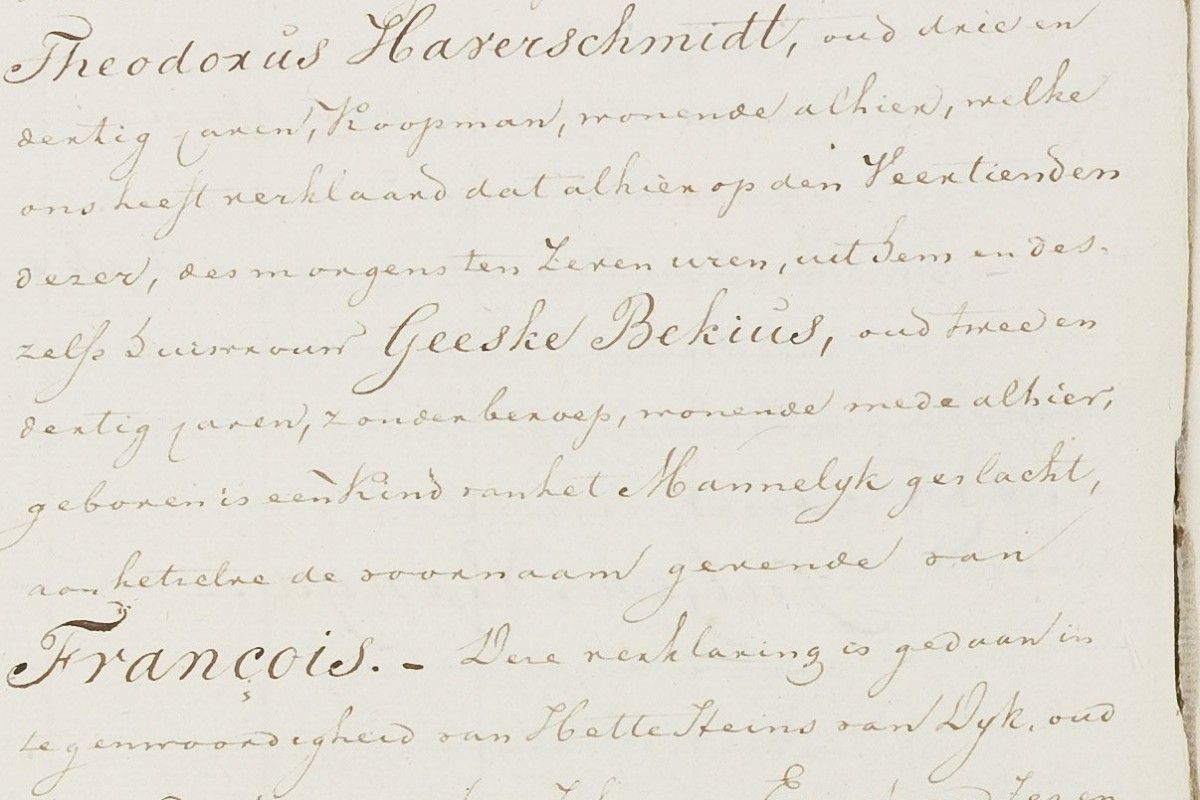 Theodorus Haverschmidt, oud drie en
dertig jaren, Koopman, wonende alhier, welke
ons heeft verklaard dat alhier op den Veertienden
dezer, des morgens ten Zeven uren, uit hem en des-
zelfs huisvrouw Geeske Bekius, oud twee en
dertig jaren, zonder beroep, wonende mede alhier,
geboren is een Kind van het Mannelyk geslacht,
aan hetzelve de voornaam gevende van
François. - Deze verklaring is gedaan in
tegenwoordigheid van Hette Heins van Dyk, oud
Zeven